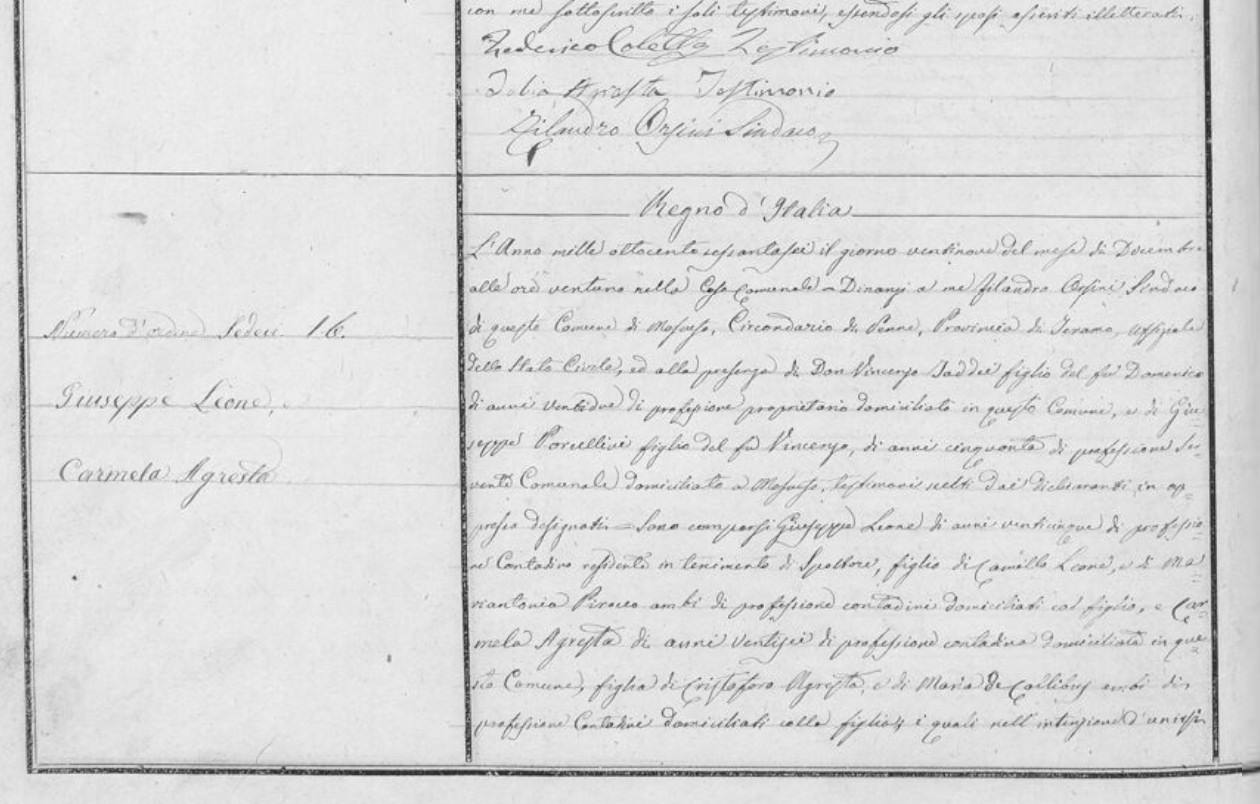 con me sottoscritto i soli testimoni, essendosi gli sposi asseriti illetterati.
Federico Coletta Testimonio
Agresta Testimonio
Filandro Orsini Sindaco
Regno d'Italia
L'Anno mille ottocento sessantasei il giorno ventinove del mese di Decembre
alle ore ventuno nella Casa Comunale = Dinanzi a me Filandro Orsini Sindaco
di questo Comune di Moscufo, Circondario di Penne, Provincia di Teramo, Uffiziale
dello Stato Civile, ed alla presenza di Don Vincenzo Taddei figlio del fu Domenico
di anni ventidue di professione proprietario domiciliato in questo Comune, e di Giu=
seppe Porcellini figlio del fu Vincenzo, di anni cinquanta di professione Ser=
vente Comunale domiciliato a Moscufo, testimoni scelti dai dichiaranti, in ap=
presso designati = Sono comparsi Giuseppe Leone di anni venticinque di professio=
ne Contadino residente in tenimento di Spoltore, figlio di Camillo Leone, e di Ma=
riantonia Pirocco ambi di professione contadini domiciliati col figlio, e Car=
mela Agresta di anni ventisei di professione contadina domiciliata in que=
sto Comune, figlia di Cristoforo Agresta, e di Maria de Caelibus ambi di
professione Contadini domiciliati colla figlia; i quali nell'intenzione d'unirsi
Numero d'ordine Sedeci 16.
Giuseppe Leone,
Carmela Agresta